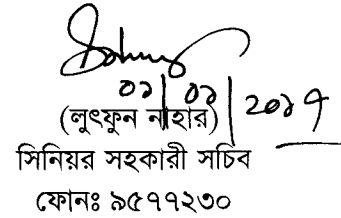 ০১/০১/২০১৭
(লুৎফুন নাহার)
সিনিয়র সহকারী সচিব
ফোনঃ ৯৫৭৭২৩০